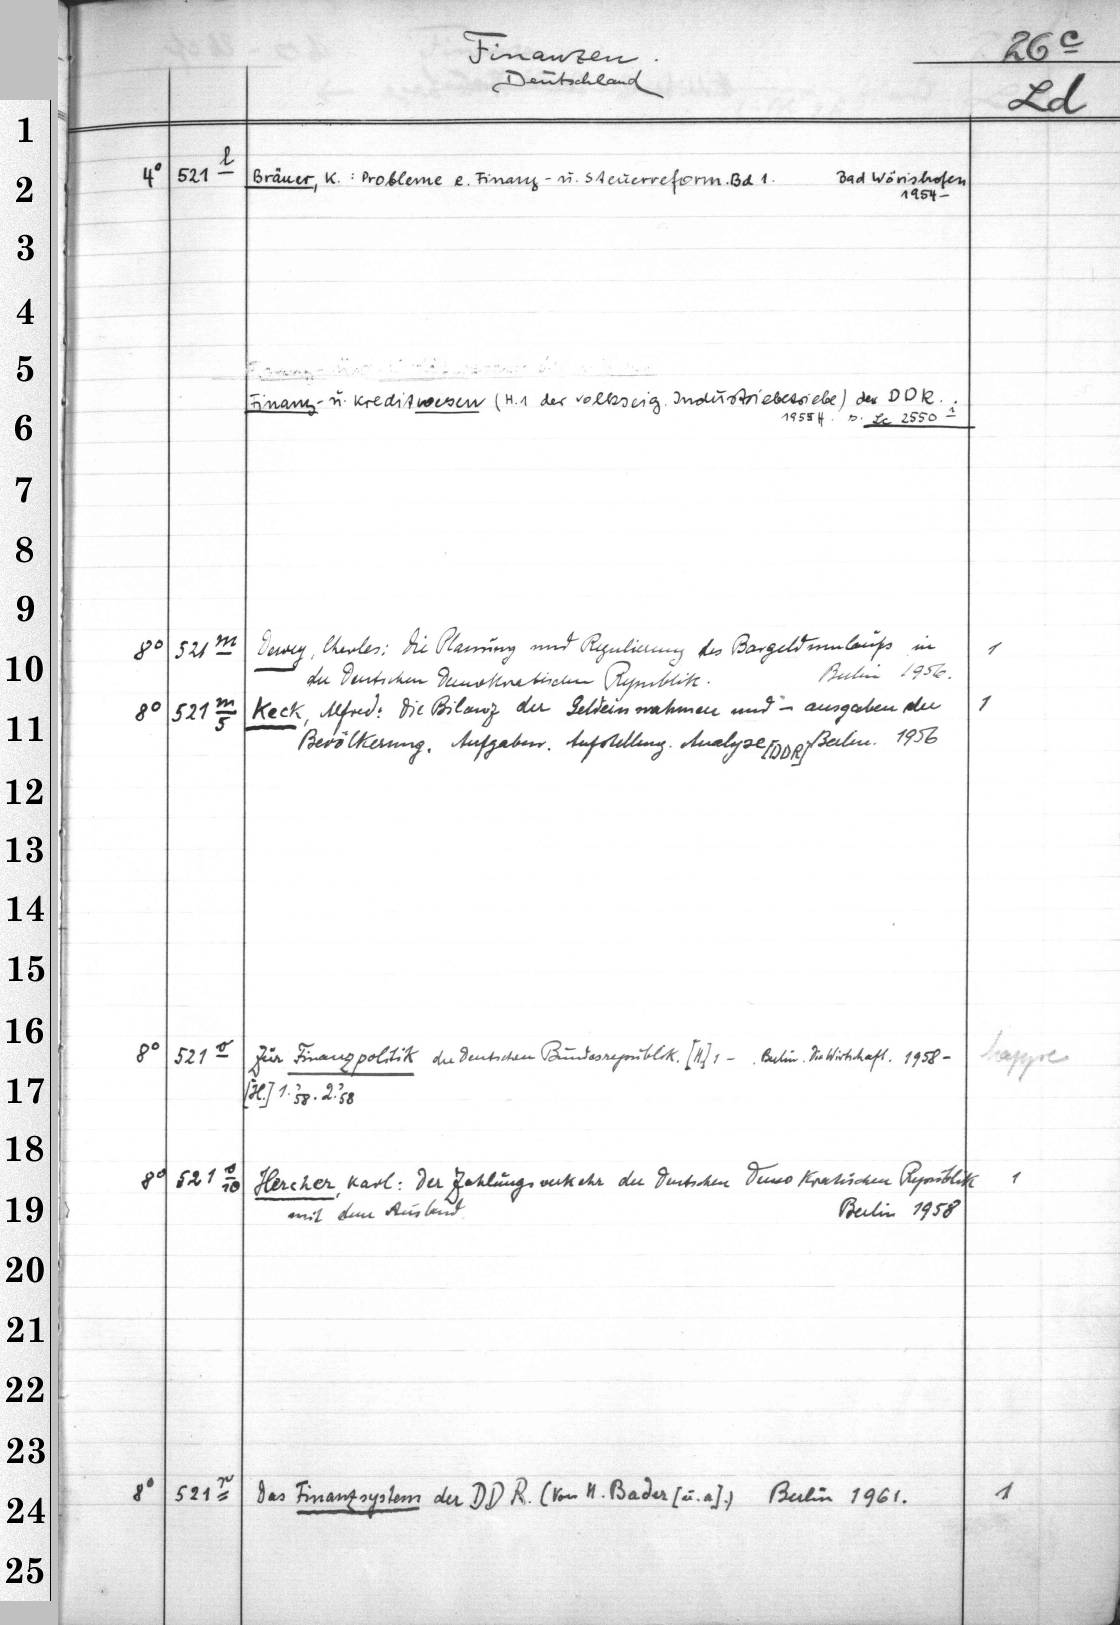 Finanzen.
Deutschland
26c
Ld
1
4° 521 l Bräuer, K.: Probleme e. Finanz- u. Steuerreform. Bd 1. Bad Wörishofen
2
1954-
3
4
5
Finanz- u. Kreditwesen (H.1 der volkseig. Industriebetriebe) der DDR.
1955 ff. s. Lc 2550 i
6
7
8
9
8° 521 m Dewey, Charles: Die Planung und Regulierung des Bargeldumlaufs in 1
10
der Deutschen Demokratischen Republik. Berlin 1956.
8° 521 m/5 Keck, Alfred: Die Bilanz der Geldeinnahmen und -ausgaben der 1
11
Bevölkerung. Aufgaben. Aufstellung. Analyse [DDR] Berlin. 1956
12
13
14
15
16
8° 521 o Zur Finanzpolitik der Deutschen Bundesrepublik. [H] 1- . Berlin. Die Wirtschaft. 1958-
17
[H.] 1.'58. 2.'58
18
8° 521 o/10 Hercher, Karl: Der Zahlungsverkehr der Deutschen Demokratischen Republik 1
19
mit dem Ausland Berlin 1958
20
21
22
23
8° 521 r Das Finanzsystem der DDR. (Von H. Bader [u.a].) Berlin 1961. 1
24
25